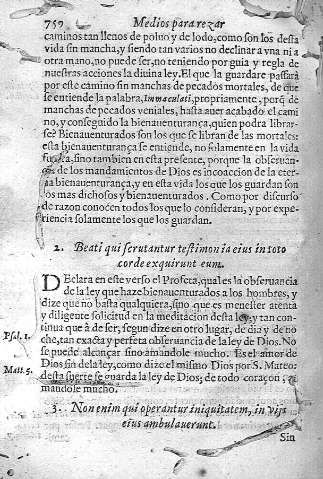 759 Medios para rezar
caminos tan llenos de poluo y de lodo, como son los desta
vida sin mancha, y siendo tan varios no declinar a vna ni a
otra mano, no puede ser, no teniendo por guia y regla de
nuestras acciones la diuina ley. El que la guardare passarà
por este camino sin manchas de pecados mortales, de que
se entiende la palabra, immaculati, propriamente, porq̃ de
manchas de pecados veniales, hasta auer acabado el cami
no, y conseguido la bienauenturança, quien podra librar-
se? Bienauenturados son los que se libran de las mortales:
esta bienauenturança se entiende, no solamente en la vida
sino tambien en esta presente, porque la obseruan-
de los mandamientos de Dios es incoaccion de la eter-
na bienauenturança, y en esta vida los que los guardan son
los mas dichosos y bienauenturados. Como por discurso
de razon conocen todos los que lo consideran, y por expe-
riencia solamente los que los guardan.
2. Beati qui scrutantur testimonia eius in toto
corde exquirunt eum.
DEclara en este verso el Profeta, qual es la obseruancia
de la ley que haze bienauenturados a los hombres, y
dize que no basta qualquiera, sino que es menester atenta
y diligente solicitud en la meditacion desta ley, y tan con-
tinua que à de ser, segun dize en otro lugar, de dia y de no
Psal. 1. che, tan exacta y perfeta obseruancia de la ley de Dios. No
se puede alcançar sino amandole mucho. Es el amor de
Matt. 5. Dios sin dela ley, como dize el mismo Dios por S. Mateo:
desta suerte se guarda la ley de Dios, de todo coraçon,
amandole mucho.
3. Non enim qui operantur iniquitatem, in vijs
eius ambulauerunt.
Sin